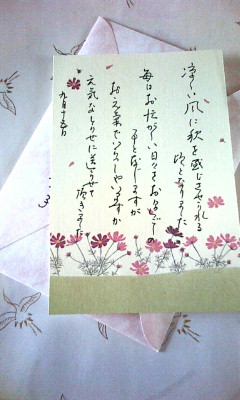 涼しい風に秋を感じさせられる
頃となりました
毎日お忙がしい日々をお過ごしの
ことと存じますが
お元気でいらっしゃいますか
元気なしらせに送らせて
頂きました
九月十五日